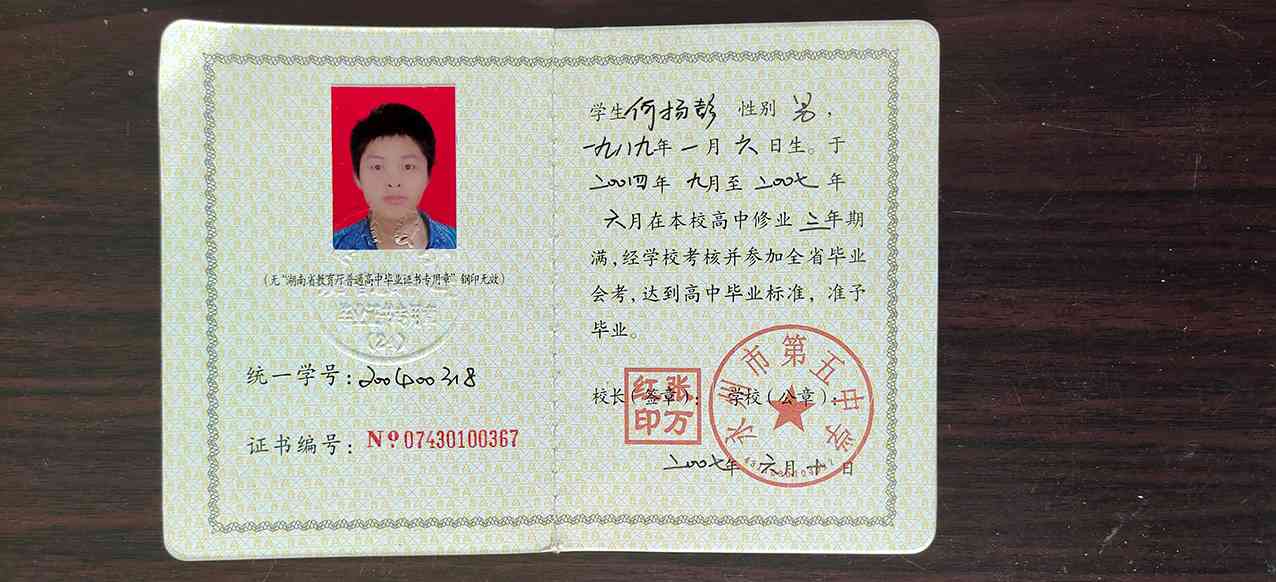 （无“湖南省教育厅普通高中毕业证书专用章”钢印无效）
毕业证书专用章
(24)
统一学号：200400318
证书编号：№07430100367
学生 何扬彭 性别 男，
一九八九年 一月 六日生。于
二00四年 九月至 二00七 年
六月在本校高中修业 三年期
满，经学校考核并参加全省毕业
会考，达到高中毕业标准，准予
毕业。
校长（签章）： 学校（公章）：
张万红印
永州市第五中学
二00七年 六月 十 日